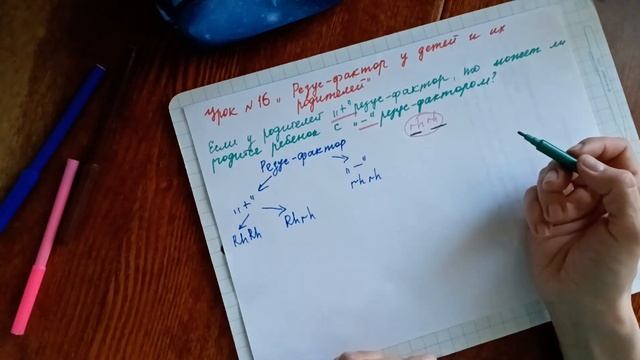 Урок №16 „Резус-фактор у детей и их
родителей"
Если у родителей „+" резус-фактор, то может ли
родится ребенок с „–" резус-фактором?
rh rh
Резус-фактор
„+"
„–"
rh rh
RhRh
Rhrh